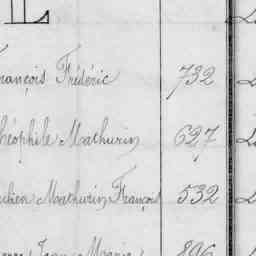 L
François Frédéric 732
Théophile Mathurin 627
Julien Mathurin François 532
Jean Marie 806